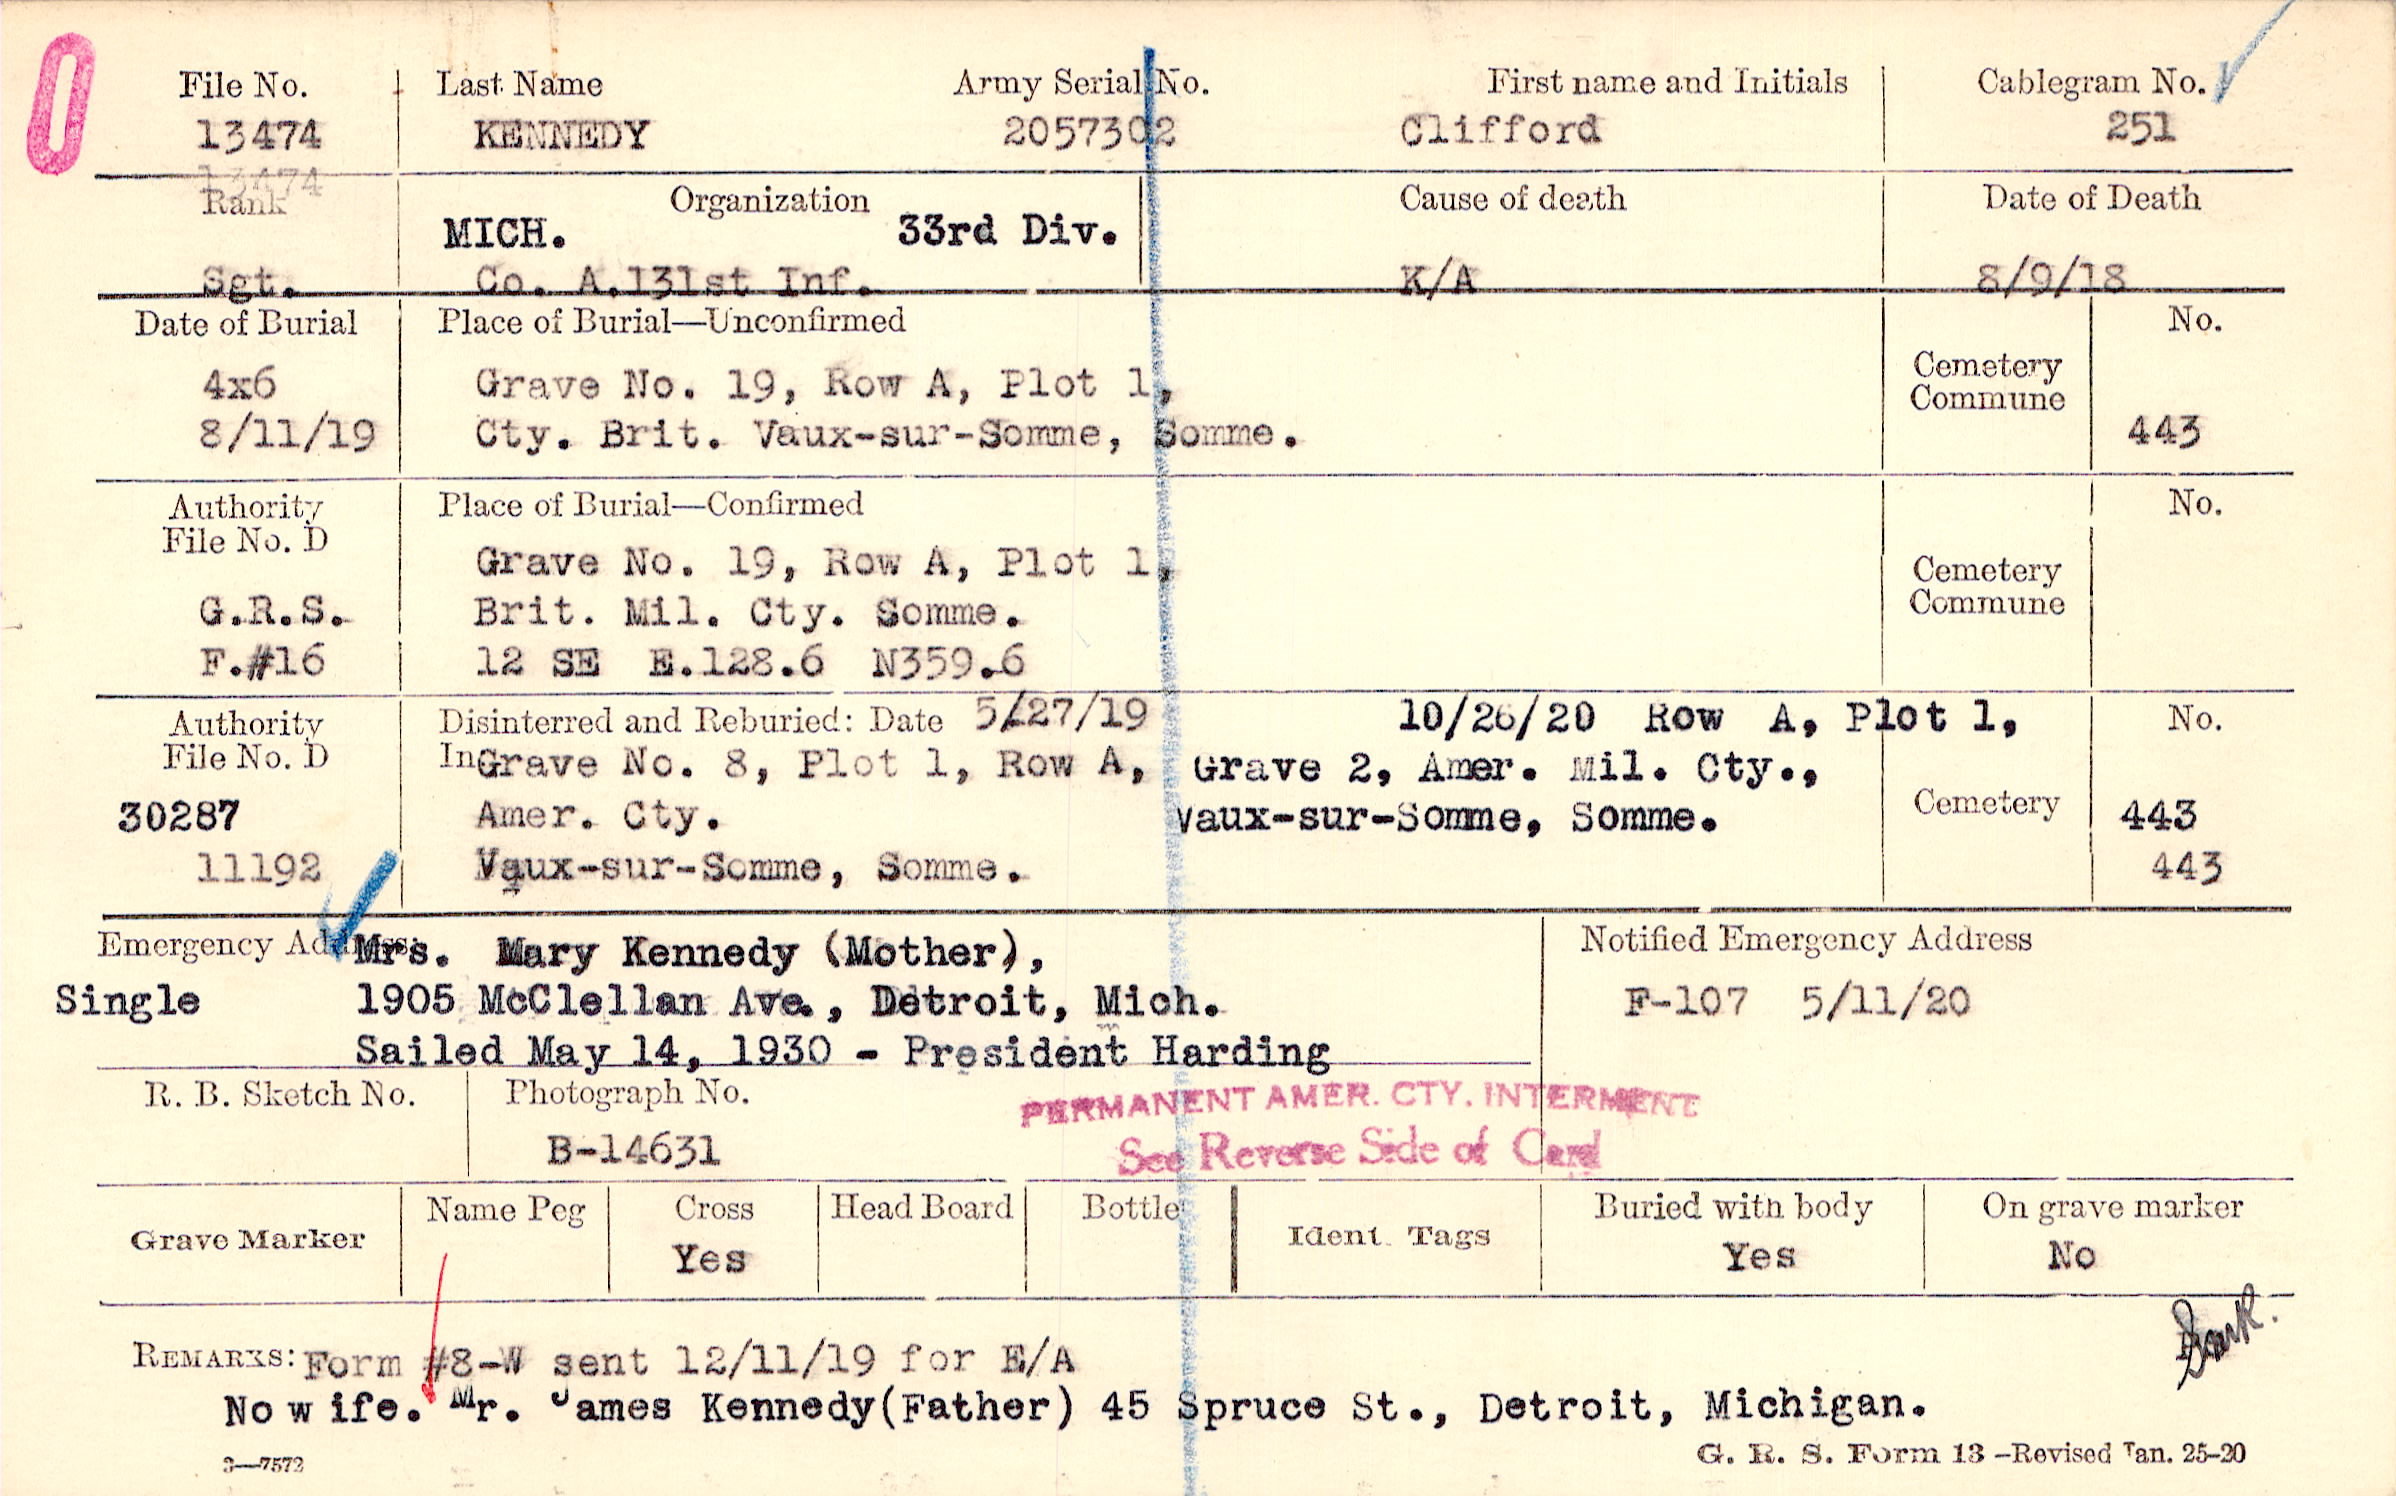 File No. Last Name Army Serial No. First name and Initials Cablegram No.
13474 KENNEDY 2057302 Clifford 251
13474
Rank Organization Cause of death Date of Death
MICH. 33rd Div.
Sgt. Co. A.131st Inf. K/A 8/9/18
Date of Burial Place of Burial—Unconfirmed No.
Cemetery
4x6 Grave No. 19, Row A, Plot 1, Commune
8/11/19 Cty. Brit. Vaux-sur-Somme, Somme. 443
Authority Place of Burial—Confirmed No.
File No. D
Grave No. 19, Row A, Plot 1, Cemetery
G.R.S. Brit. Mil. Cty. Somme. Commune
F.#16 12 SE E.128.6 N359.6
Authority Disinterred and Reburied: Date 5/27/19 10/26/20 Row A, Plot 1, No.
File No. D In Grave No. 8, Plot 1, Row A, Grave 2, Amer. Mil. Cty.,
30287 Amer. Cty. Vaux-sur-Somme, Somme. Cemetery 443
11192 Vaux-sur-Somme, Somme. 443
Emergency Address: Mrs. Mary Kennedy (Mother), Notified Emergency Address
Single 1905 McClellan Ave., Detroit, Mich. F-107 5/11/20
Sailed May 14, 1930 - President Harding
R. B. Sketch No. Photograph No. PERMANENT AMER. CTY. INTERMENT
B-14631 See Reverse Side of Card
Grave Marker Name Peg Cross Head Board Bottle Ident. Tags Buried with body On grave marker
Yes Yes No
REMARKS: Form #8-W sent 12/11/19 for E/A
No wife. Mr. James Kennedy(Father) 45 Spruce St., Detroit, Michigan.
3—7572 G. R. S. Form 13 –Revised Jan. 25–20